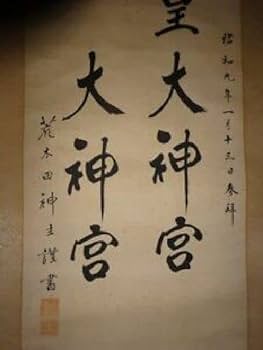 昭和九年一月十三日参拝
皇大神宮
大神宮
荒木田神主謹書